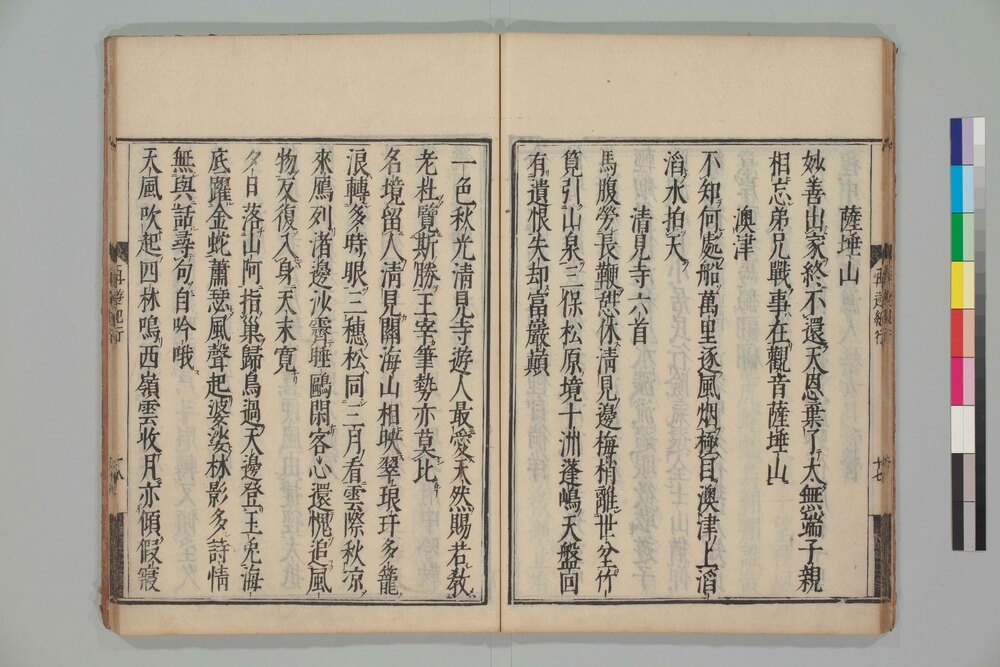 薩埵山
妙善出家終不還天恩棄了太無端子親
相忘弟兄戰事在觀音薩埵山
澳津
不知何處船萬里逐風烟極目澳津上滔
滔水拍天
清見寺六首
馬腹勞長鞭憩休清見邊梅梢離世塵竹
筧引山泉三保松原境十洲蓬嶋天盤回
有遺恨失却富嚴巓
一色秋光清見寺遊人最愛天然賜若教
老杜覽斯勝王宰筆勢亦莫比
名境留人清見關海山相映翠琅玕多龍
浪轉多時眼三穗松同三月看雲際秋凉
來鴈列渚邊沙霽睡鷗閑客心還愧追風
物友復入身天末寬
夕日落山阿指巢歸鳥過天邊登玉兔海
底躍金蛇蕭瑟風聲起婆娑林影多詩情
無與話尋句自吟哦
天風吹起四林鳴西嶺雲收月亦傾假寢